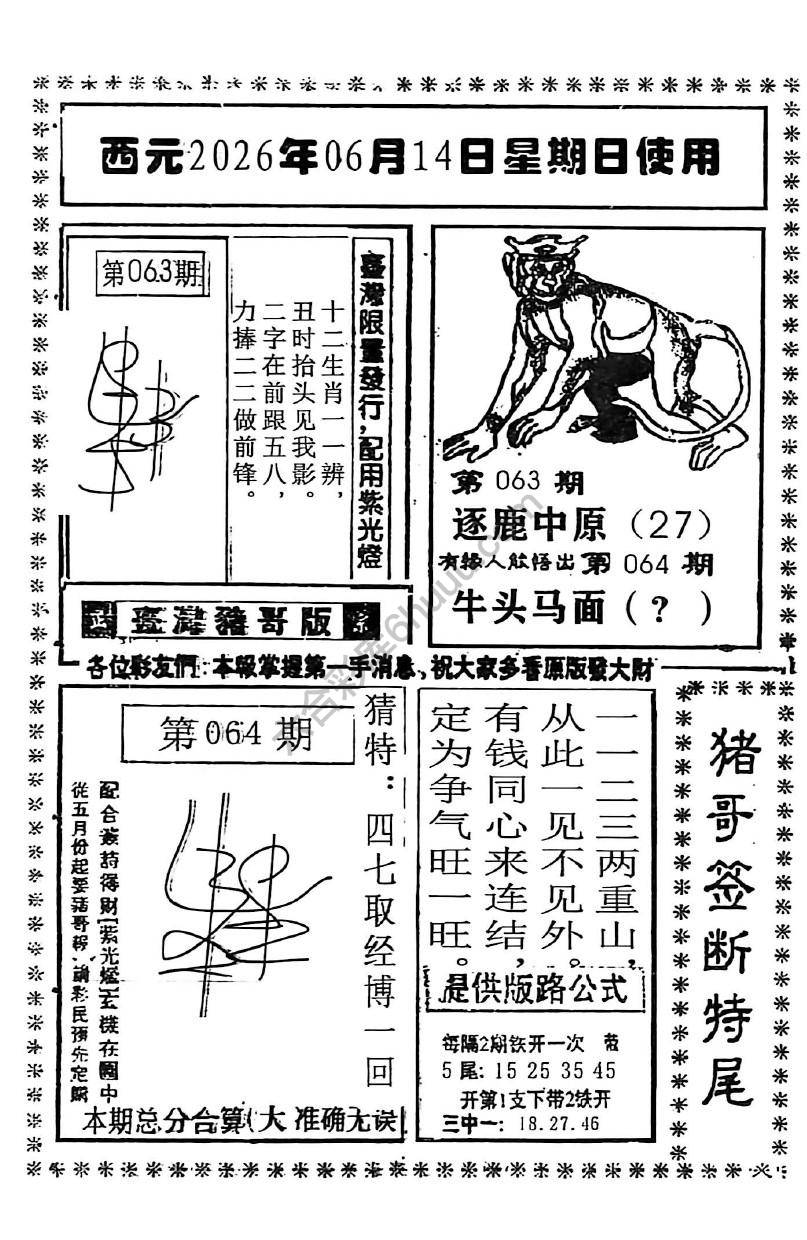 西元2026年06月14日星期日使用
第063期
臺灣限量發行，配用紫光燈
十二生肖一一辨，
丑时抬头见我影。
二字在前跟五八，
力捧二二做前锋。
臺灣豬哥版
第 063 期
逐鹿中原（27）
有缘人能悟出第 064 期
牛头马面（？）
各位彩友們：本報掌握第一手消息、祝大家多看原版發大財
第064期
猜特：四七取经博一回
配合簽詩得財(紫光燈)玄機在圖中
從五月份起要豬哥報、請彩民預先定購
本期总分合算(大 准确无误)
一一二三两重山，
从此一见不见外。
有钱同心来连结，
定为争气旺一旺。
提供版路公式
每隔2期铁开一次
5尾: 15 25 35 45
开第1支下带2铁开
三中一: 18.27.46
猪哥签断特尾
六合彩库6huuu.com